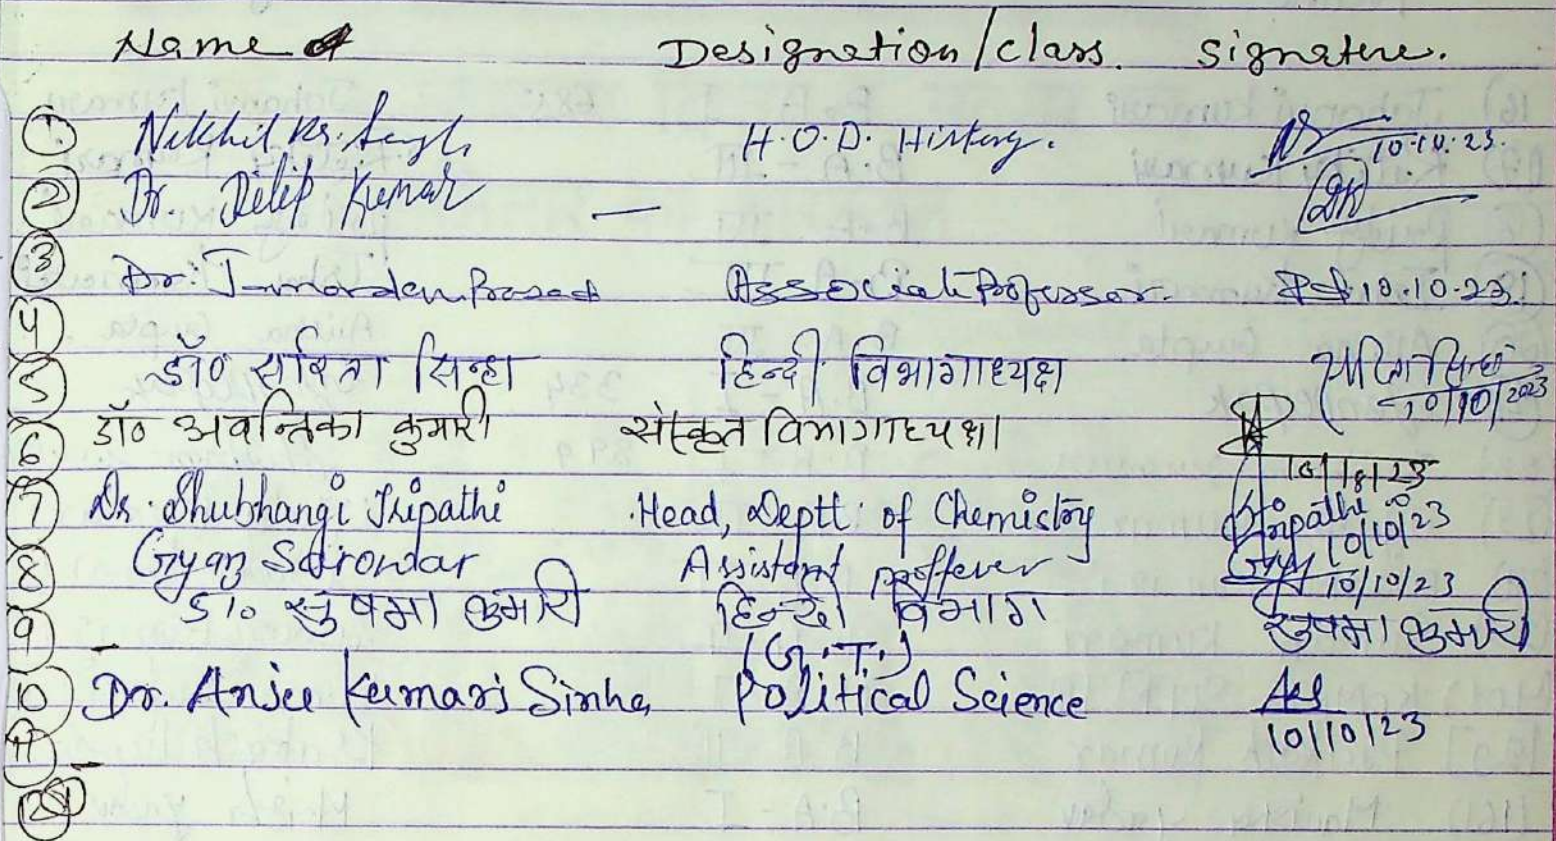 Name Designation/class. Signature.
1. Nikhil Kr. Singh H.O.D. History. 10.10.23.
2 Dr. Dilip Kumar — DK
3 Dr. Prasad Associate Professor. 10.10.23.
4
5 डॉ० सरिता सिन्हा हिन्दी विभागाध्यक्ष सरिता सिन्हा 10/10/2023
6 डॉ० अवन्तिका कुमारी संस्कृत विभागाध्यक्षा
7 Dr. Shubhangi Tripathi Head, Deptt. of Chemistry Tripathi 10/10/23
8 Gyan Assistant 10/10/23
डा० सुषमा कुमारी हिन्दी विभाग सुषमा कुमारी
9 (G.T.)
10 Dr. Anju Kumari Sinha Political Science
11 10/10/23
12